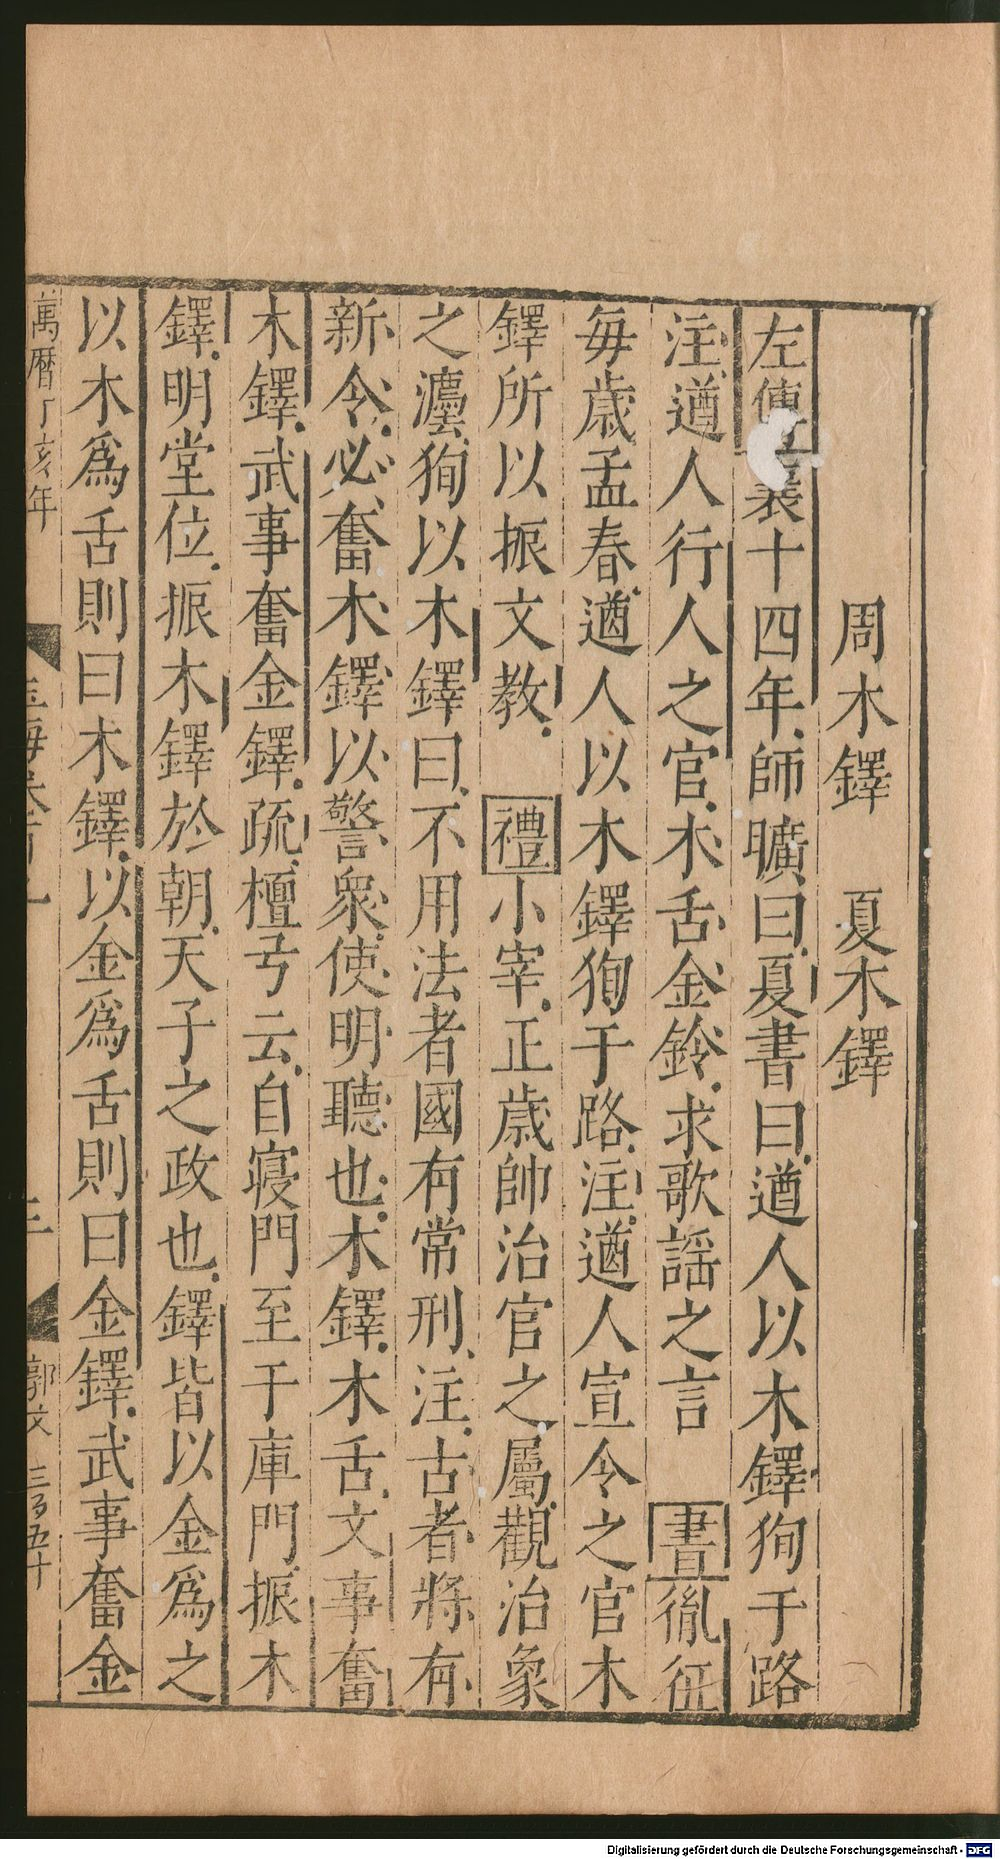 周木鐸　夏木鐸
左傳襄十四年師曠曰夏書曰遒人以木鐸狥于路
注遒人行人之官木舌金鈴求歌謡之言　書胤征
毎歳孟春遒人以木鐸狥于路注遒人宣令之官木
鐸所以振文教　禮小宰正歳帥治官之屬觀治象
之灋狥以木鐸曰不用法者國有常刑注古者將有
新令必奮木鐸以警衆使明聽也木鐸木舌文事奮
木鐸武事奮金鐸疏檀弓云自寢門至于庫門振木
鐸明堂位振木鐸於朝天子之政也鐸皆以金爲之
以木爲舌則曰木鐸以金爲舌則曰金鐸武事奮金
萬曆丁亥年
玉海卷百
三
郭文　三百五十
Digitalisierung gefördert durch die Deutsche Forschungsgemeinschaft - DFG